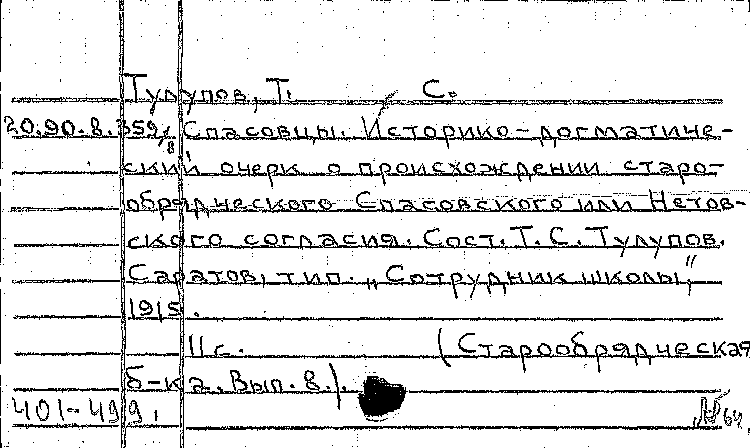 Тулупов, Т. С.
20.90.8.359/8 Спасовцы. Историко-догматиче-
ский очерк о происхождении старо-
обрядческого Спасовского или Нетов-
ского согласия. Сост. Т. С. Тулупов.
Саратов, тип. „Сотрудник школы",
1915.
11 с. (Старообрядческая
б-ка. Вып. 8.).
401-499.